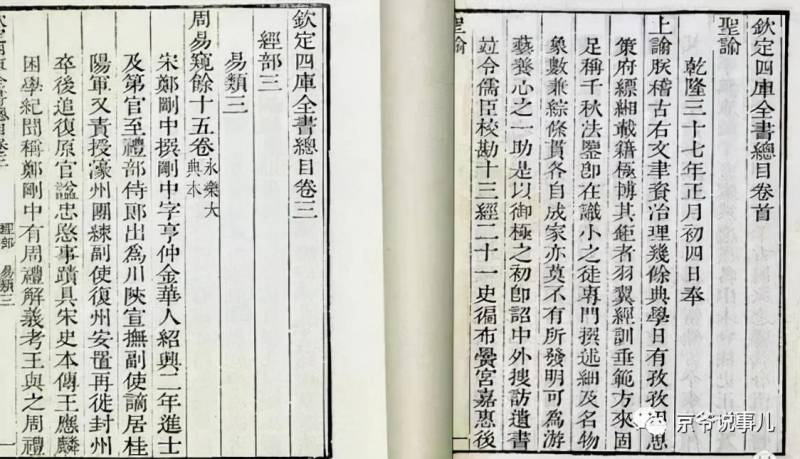 欽定四庫全書總目卷首
聖諭
乾隆三十七年正月初四日奉
上諭朕稽古右文聿資治理幾餘典學日有孜孜因思
策府縹緗載籍極博其鉅者羽翼經訓垂範方來固
足稱千秋法鑒卽在識小之徒專門撰述細及名物
象數兼綜條貫各自成家亦莫不有所發明可為游
藝養心之一助是以御極之初卽詔中外搜訪遺書
竝令儒臣校勘十三經二十一史徧布黌宮嘉惠後
聖諭
一
欽定四庫全書總目卷三
經部三
易類三
周易窺餘十五卷永樂大典本
宋鄭剛中撰剛中字亨仲金華人紹興二年進士
及第官至禮部侍郎出為川陝宣撫副使謫居桂
陽軍又責授濠州團練副使復州安置再徙封州
卒後追復原官諡忠愍事蹟具宋史本傳王應麟
困學紀聞稱鄭剛中有周禮解義考王與之周禮
經部 易類三
一
京爷说事儿